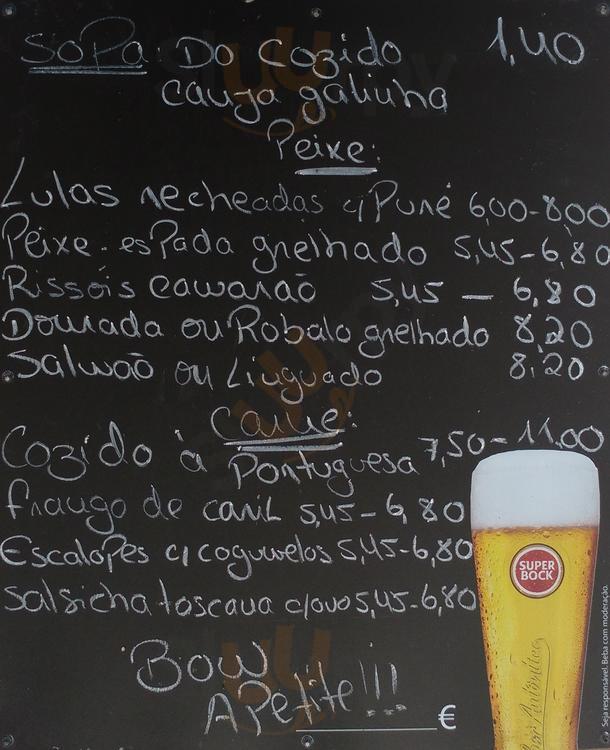 Sopa Do Cozido 1,40
canja galinha
Peixe:
Lulas recheadas c/Puré 6,00-8,00
Peixe-esPada grelhado 5,45-6,80
Rissóis camarão 5,45 - 6,80
Dourada ou Robalo grelhado 8,20
Salmão ou Linguado 8,20
Carne:
Cozido à Portuguesa 7,50-11,00
frango de caril 5,45-6,80
Escalopes c/cogumelos 5,45-6,80
Salsicha toscana c/ovo 5,45-6,80
Bom
APetite!!!
€
SUPER
BOCK
Seja responsável. Beba com moderação.